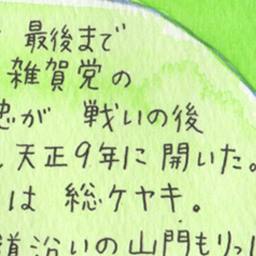 最後まで
雑賀党の
忠が 戦いの後
天正9年に開いた。
は 総ケヤキ。
道沿いの山門もりっ